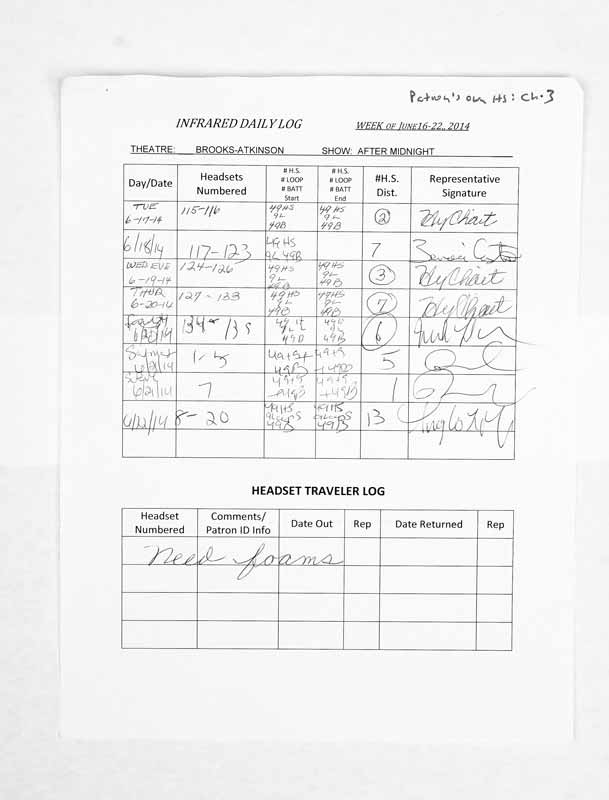 Patron's own HS: Ch. 3
INFRARED DAILY LOG WEEK OF JUNE 16-22, 2014
THEATRE: BROOKS-ATKINSON SHOW: AFTER MIDNIGHT
Day/Date Headsets Numbered # H.S. # LOOP # BATT Start # H.S. # LOOP # BATT End #H.S. Dist. Representative Signature
TUE 6-17-14 115-116 49HS 9L 49B 49HS 9L 49B 2
6/18/14 117-123 49HS 9L 49B 7
WED EVE 6-19-14 124-126 49HS 9L 49B 49HS 9L 49B 3
THUR 6-20-14 127-133 49HS 9L 49B 49HS 9L 49B 7
6/20/14 134-139 49 9L 49B 6
6/21/14 1-5 49+9 49B 49+9 +49B 5
6/21/14 7 49+9 +49B 49+9 +49B 1
6/22/14 8-20 49HS 49B 49HS 49B 13
HEADSET TRAVELER LOG
Headset Numbered Comments/ Patron ID Info Date Out Rep Date Returned Rep
Need foams